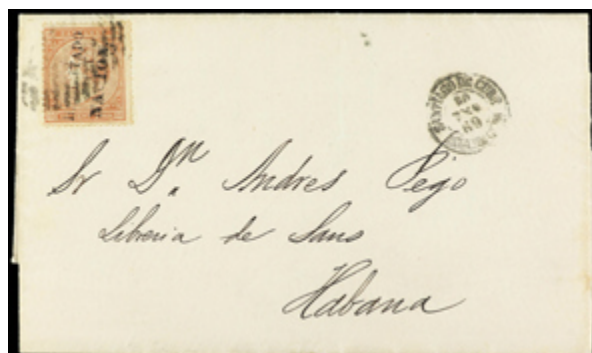 TADO
SANTIAGO DE CUBA
69
Sr Dn. Andres Pego
Libreria de Sans
Habana